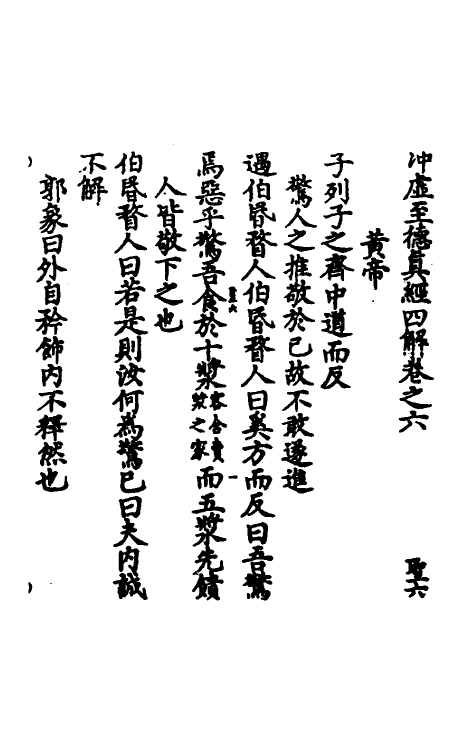 冲虛至德眞經四解卷之六 聖六
黃帝
子列子之齊中道而反
驚人之推敬於己故不敢遂進
遇伯昏瞀人伯昏瞀人曰奚方而反曰吾驚
焉惡乎驚吾食於十漿客舍賣漿之家而五漿先饋
人皆敬下之也
伯昏瞀人曰若是則汝何爲驚已曰夫內誠
不解
郭象曰外自矜飾內不釋然也